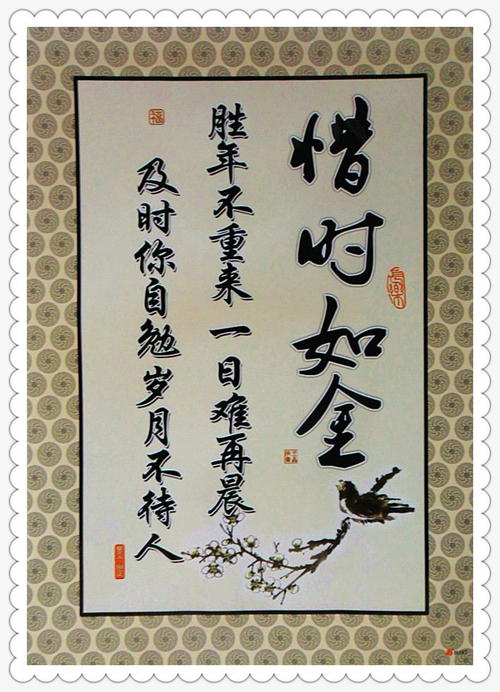 惜时如金
胜年不重来 一日难再晨
及时你自勉岁月不待人
福